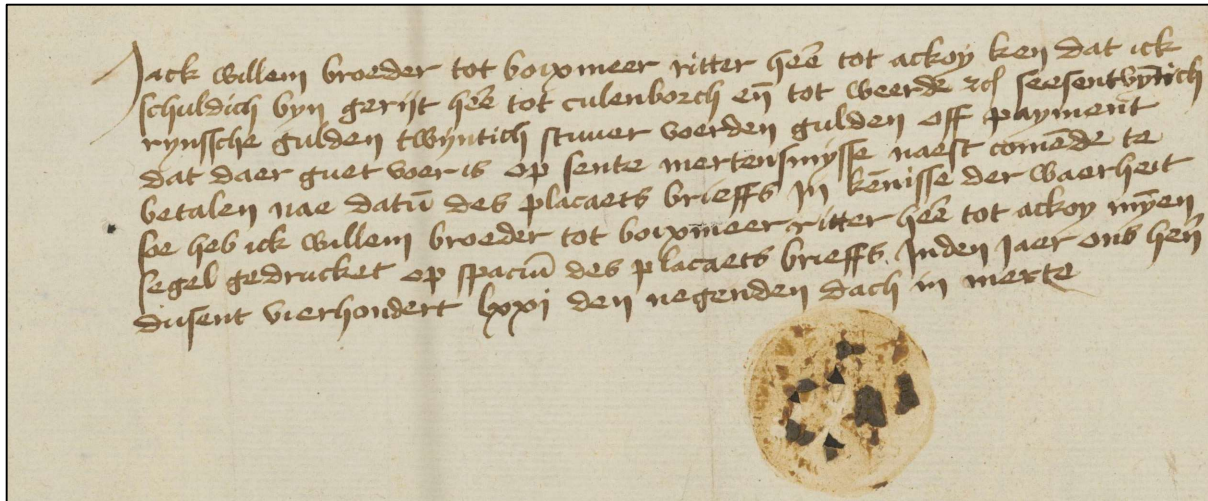 Jack willem broeder tot boixmeer ritter hee tot ackoy ken dat ick
schuldich byn gerijt hee tot culenborch en tot weerde etc seesentwyntich
rynssche gulden twyntich stuver voerden gulden off payment
dat daer guet voer is op sente mertensmysse naest comede te
betalen nae datu des placaets brieffs In kenisse der waerheit
soe heb ick willem broeder tot boixmeer ritter hee tot ackoy myen
segel gedrucket op spaciu des placaets brieffs. Inden Jaer ons hen
dusent vierhondert lxxi den negenden dach in merte